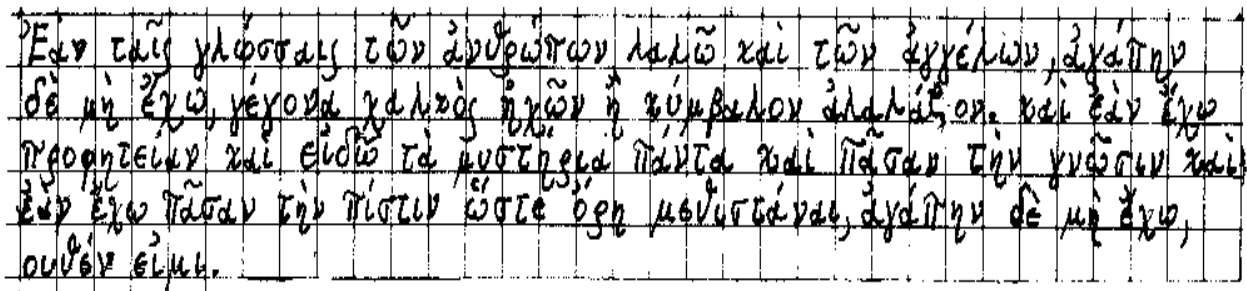 Ἐὰν ταῖς γλώσσαις τῶν ἀνθρώπων λαλῶ καὶ τῶν ἀγγέλων, ἀγάπην
δὲ μὴ ἔχω, γέγονα χαλκὸς ἠχῶν ἢ κύμβαλον ἀλαλάζον. καὶ ἐὰν ἔχω
προφητείαν καὶ εἰδῶ τὰ μυστήρια πάντα καὶ πᾶσαν τὴν γνῶσιν καὶ
ἐὰν ἔχω πᾶσαν τὴν πίστιν ὥστε ὄρη μεθιστάναι, ἀγάπην δὲ μὴ ἔχω,
οὐθέν εἰμι.